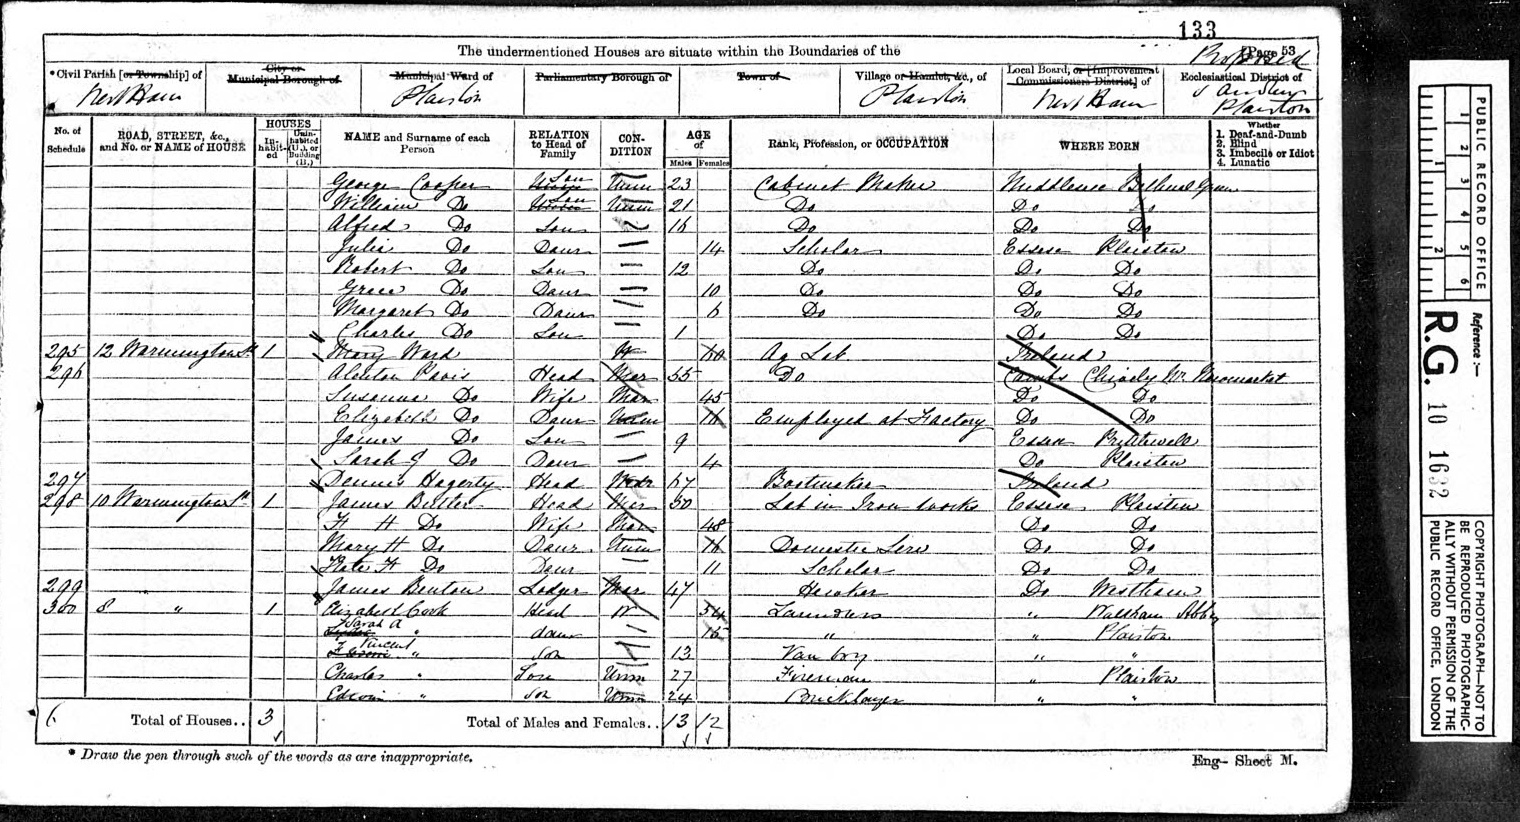 133
The undermentioned Houses are situate within the Boundaries of the
Page 53
Civil Parish [or Township] of
West Ham
City or Municipal Borough of
Municipal Ward of
Plaistow
Parliamentary Borough of
Town of
Village or Hamlet, &c., of
Plaistow
Local Board, or [Improvement Commissioners District] of
West Ham
Ecclesiastical District of
Plaistow
No. of Schedule
ROAD, STREET, &c., and No. or NAME of HOUSE
HOUSES
In-habit-ed
Unin-habited (U.), or Building (B.)
NAME and Surname of each Person
RELATION to Head of Family
CON-DITION
AGE of
Males
Females
Rank, Profession, or OCCUPATION
WHERE BORN
Whether
1. Deaf-and-Dumb
2. Blind
3. Imbecile or Idiot
4. Lunatic
George Cooper Son Unm 23 Cabinet Maker Middlesex Bethnal Green
William Do Son Unm 21 Do Do Do
Alfred Do Son 16 Do Do Do
Julia Do Daur 14 Scholar Essex Plaistow
Robert Do Son 12 Do Do Do
Grace Do Daur 10 Do Do Do
Margaret Do Daur 6 Do Do Do
Charles Do Son 1 Do Do
295 12 Warmington St 1 Mary Ward W 60 Ag Lab Ireland
296 Davis Head Mar 55 Do Cambs Nr Newmarket
Susanna Do Wife Mar 45 Do Do
Elizabeth Do Daur Unm 16 Employed at Factory Do Do
James Do Son 9 Essex Prittlewell
Sarah J Do Daur 4 Do Plaistow
297 Dennis Hagerty Head 67 Bootmaker Ireland
298 10 Warmington St 1 James Butler Head Mar 50 Lab in Iron Works Essex Plaistow
H Do Wife Mar 48 Do Do
Mary H Do Daur Unm 16 Domestic Serv Do Do
Kate H Do Daur 11 Scholar Do Do
299 James Benton Lodger Mar 47 Hawker Do Westham
300 8 " 1 Elizabeth Cook Head W 54 Laundress " Waltham Abbey
Sarah A " daur 15 " " Plaistow
Vincent " son 13 Van boy " "
Charles " Son Unm 27 Fireman " Plaistow
Edwin " son Unm 24 Bricklayer " "
6 Total of Houses.. 3 Total of Males and Females.. 13 12
* Draw the pen through such of the words as are inappropriate.
Eng- Sheet M.
PUBLIC RECORD OFFICE
1 2 3 4 5 6
1 2
Reference :-
R.G. 10 1632
COPYRIGHT PHOTOGRAPH-NOT TO BE REPRODUCED PHOTOGRAPHIC-ALLY WITHOUT PERMISSION OF THE PUBLIC RECORD OFFICE, LONDON